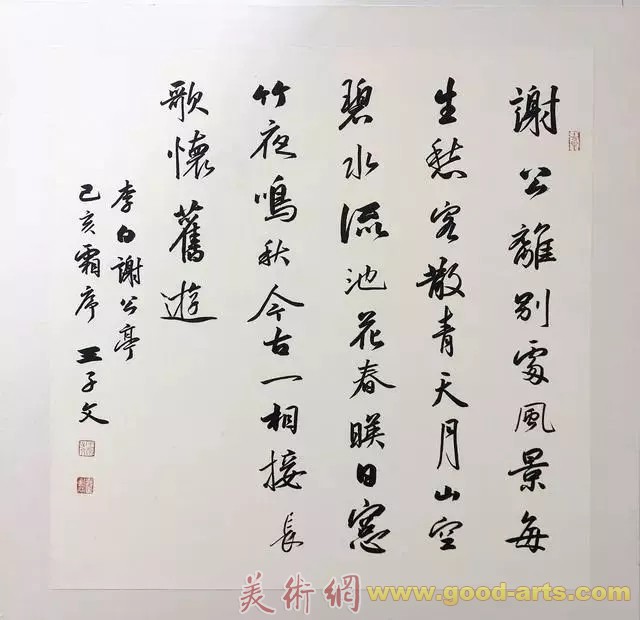 謝公離別處風景每
生愁客散青天月山空
碧水流池花春暎日窓
竹夜鳴秋今古一相接長
歌懷舊遊
李白謝公亭
己亥霜序王子文
美術網www.good-arts.com